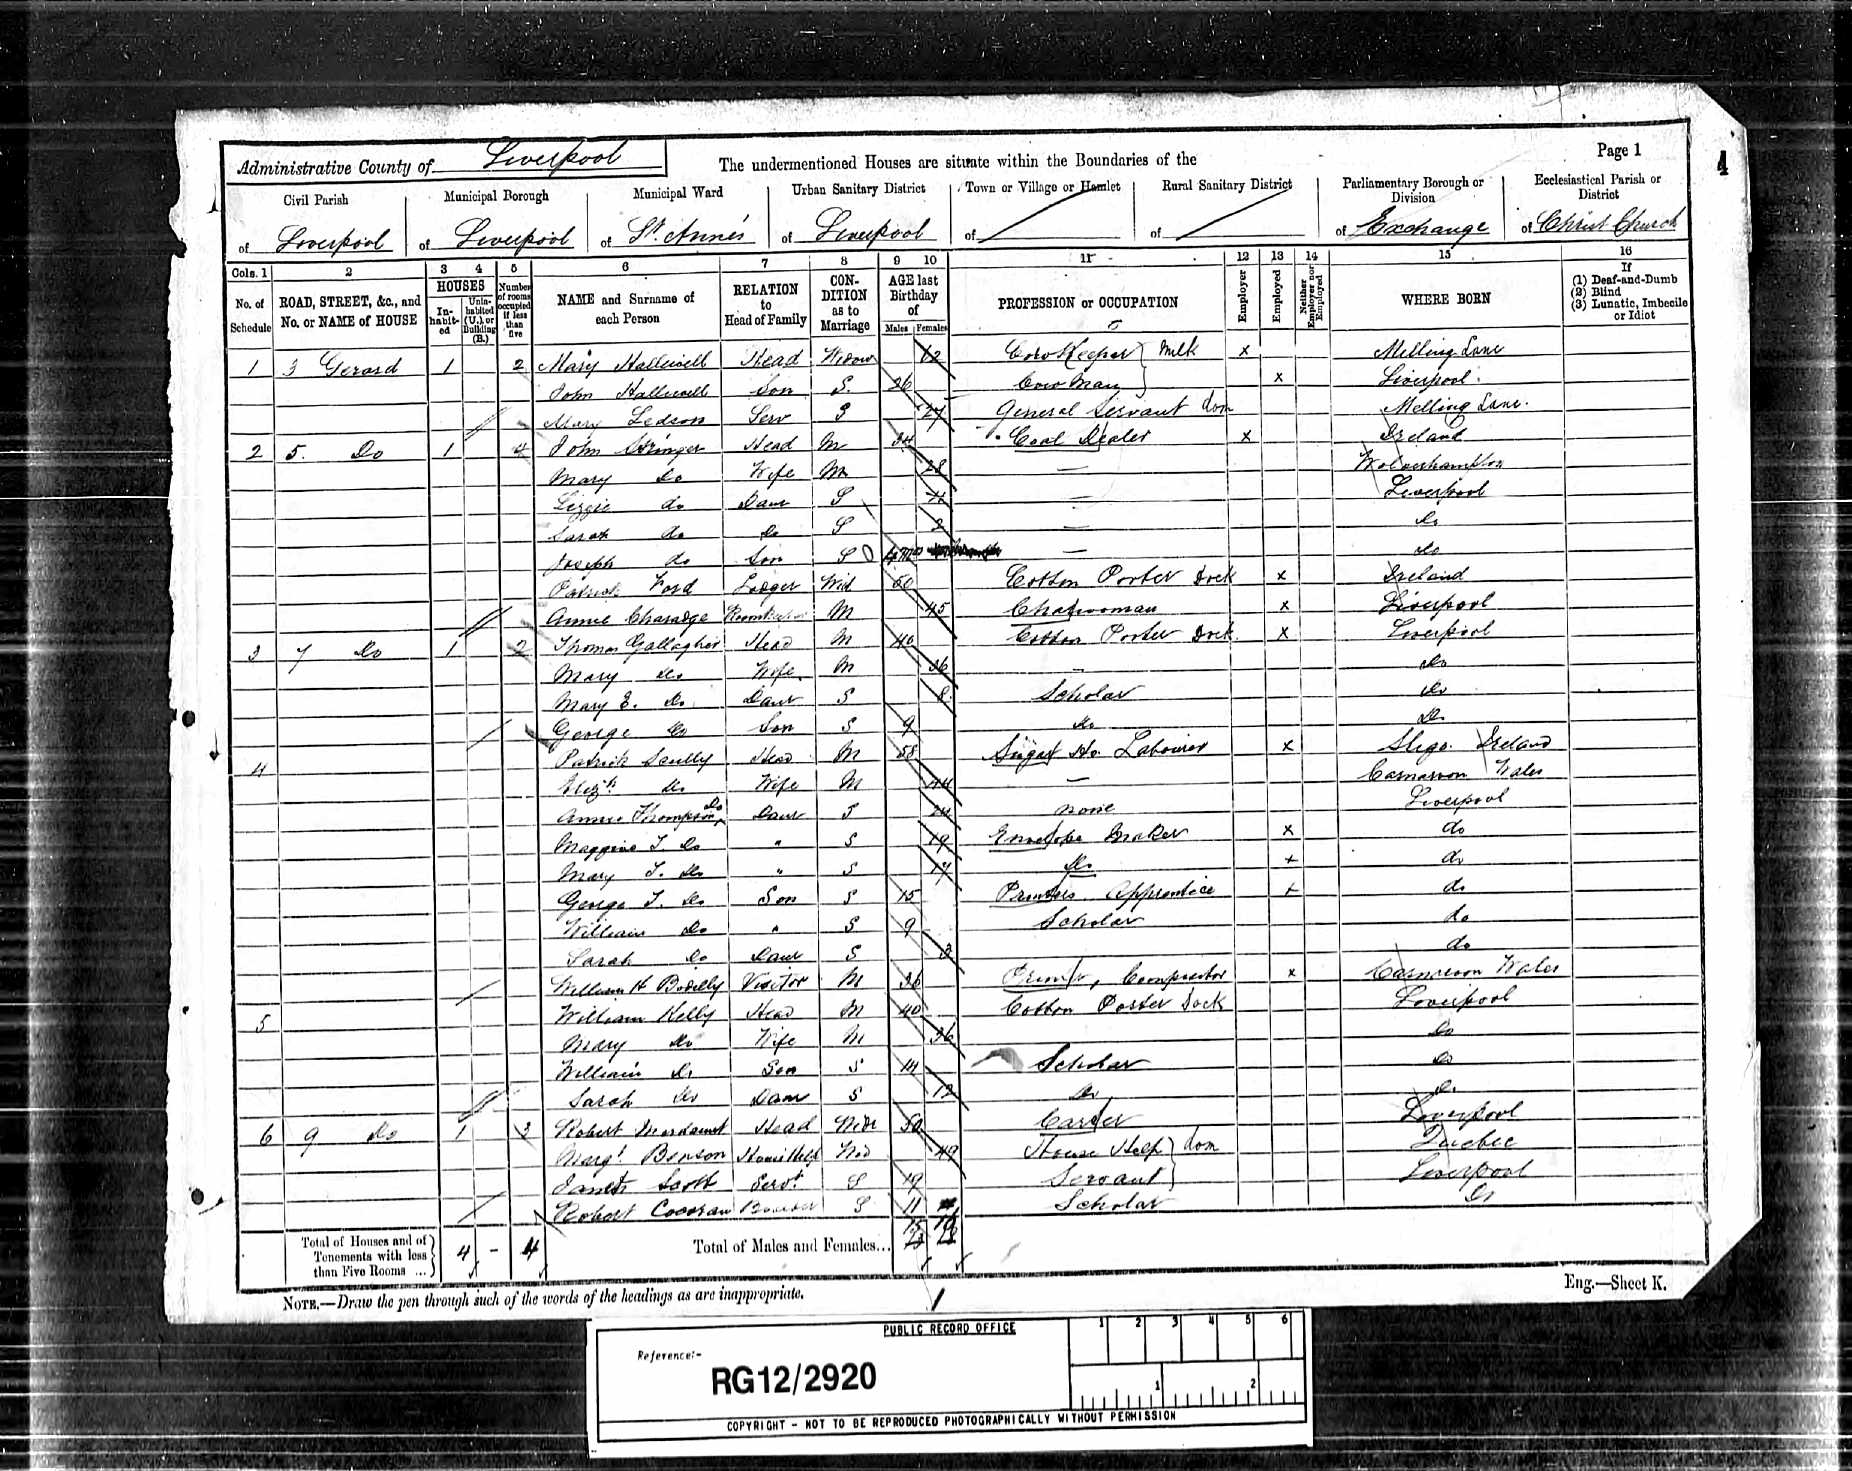 Page 1
4
Administrative County of Liverpool
The undermentioned Houses are situate within the Boundaries of the
Civil Parish of Liverpool
Municipal Borough of Liverpool
Municipal Ward of St. Anne's
Urban Sanitary District of Liverpool
Town or Village or Hamlet of
Rural Sanitary District of
Parliamentary Borough or Division of Exchange
Ecclesiastical Parish or District of Christ Church
Cols. 1 2 3 4 5 6 7 8 9 10 11 12 13 14 15 16
No. of Schedule
ROAD, STREET, &c., and No. or NAME of HOUSE
HOUSES
Inhabited
Uninhabited (U.), or Building (B.)
Number of rooms occupied if less than five
NAME and Surname of each Person
RELATION to Head of Family
CONDITION as to Marriage
AGE last Birthday of
Males Females
PROFESSION or OCCUPATION
Employer
Employed
Neither Employer nor Employed
WHERE BORN
If (1) Deaf-and-Dumb (2) Blind (3) Lunatic, Imbecile or Idiot
1 3 Gerard 1 2 Mary Halliwell Head Widow Cow Keeper Milk x Melling Lane
John Halliwell Son S. 26 Cow Man x Liverpool.
Mary Ledson Serv S 27 General Servant Dom Melling Lane.
2 5. Do 1 4 John Head M 34 Coal Dealer x Ireland
Mary Do Wife M 28 — Wolverhampton
Lizzie do Daur S 4 — Liverpool
Sarah do Do S 2 — Do
Joseph do Son S — do
Patrick Ford Lodger Wid 50 Cotton Porter Dock x Ireland
Annie M 45 Charwoman x Liverpool
3 7 Do 1 2 Thomas Gallagher Head M 40 Cotton Porter Dock x Liverpool
Mary do Wife M 36 - Do
Mary E. Do Daur S 8 Scholar Do
George Do Son S 9 do Do
4 Patrick Scully Head M 58 Sugar Ho. Labourer x Sligo Ireland
Elizth do Wife M 44 — Carnarvon Wales
Annie Thompson Do Daur S 24 none Liverpool
Maggie T. Do " S 19 Envelope Maker x do
Mary T. Do " S 17 Do x do
George T. Do Son S 15 Printers Apprentice x do
William Do " S 9 Scholar do
Sarah Do Daur S 3 do
William H Visitor M 36 Printer, Compositor x Carnarvon Wales
5 William Kelly Head M 40 Cotton Porter Dock Liverpool
Mary Do Wife M 36 Do
William Do Son S 14 Scholar Do
Sarah Do Daur S 12 Do Do
6 9 Do 1 3 Robert Head Widr 50 Carter Liverpool
Margt. Benson House Help Wid 49 House Help Dom Quebec
Scott Servt S 19 Servant Liverpool
Robert Cocoran S 11 Scholar Do
Total of Houses and of Tenements with less than Five Rooms ... 4 - 4
Total of Males and Females...
15
NOTE.—Draw the pen through such of the words of the headings as are inappropriate.
Eng.—Sheet K.
PUBLIC RECORD OFFICE
1 2 3 4 5 6
Reference:-
RG12/2920
1 2
COPYRIGHT - NOT TO BE REPRODUCED PHOTOGRAPHICALLY WITHOUT PERMISSION